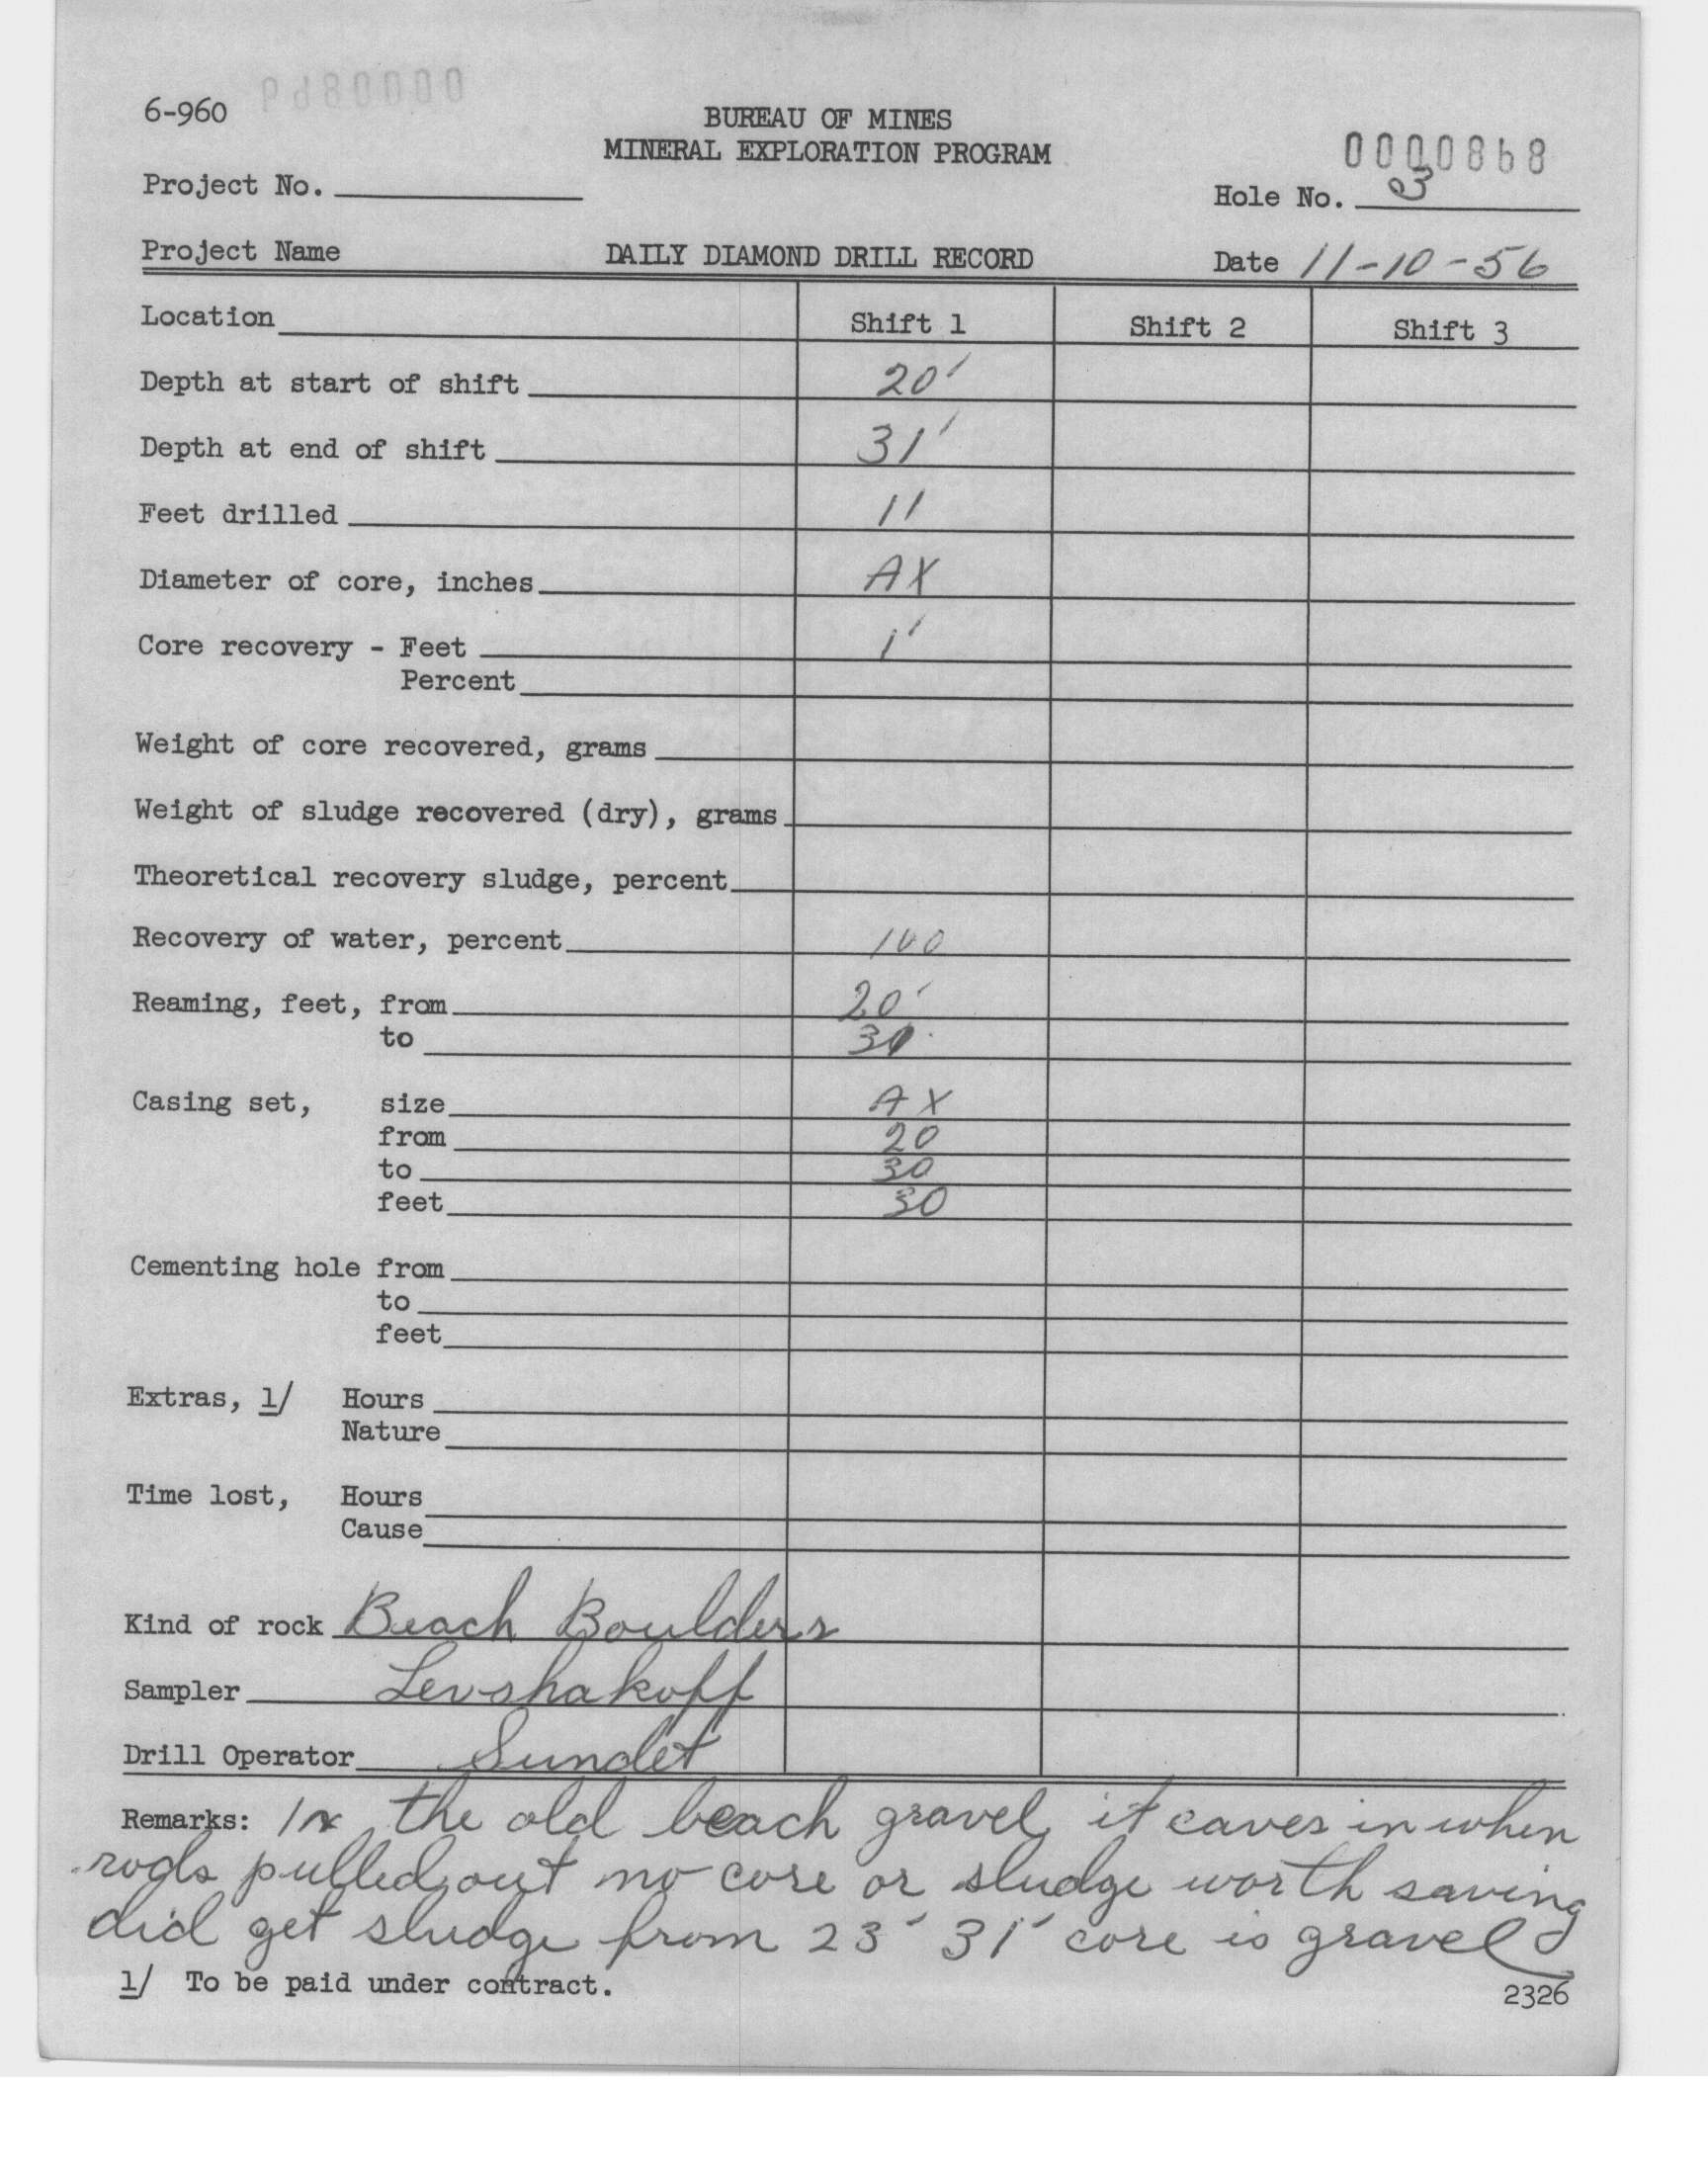 6-960
BUREAU OF MINES
MINERAL EXPLORATION PROGRAM
0000868
Project No.
Hole No. 3
Project Name DAILY DIAMOND DRILL RECORD Date 11-10-56
Location Shift 1 Shift 2 Shift 3
Depth at start of shift 20'
Depth at end of shift 31'
Feet drilled 11
Diameter of core, inches AX
Core recovery - Feet 1'
Percent
Weight of core recovered, grams
Weight of sludge recovered (dry), grams
Theoretical recovery sludge, percent
Recovery of water, percent 100
Reaming, feet, from 20'
to 30
Casing set, size AX
from 20
to 30
feet 30
Cementing hole from
to
feet
Extras, 1/ Hours
Nature
Time lost, Hours
Cause
Kind of rock Beach Boulders
Sampler Levshakoff
Drill Operator Sundet
Remarks: In the old beach gravel it caves in when
rods pulled out no core or sludge worth saving
did get sludge from 23' 31' core is gravel
1/ To be paid under contract.
2326